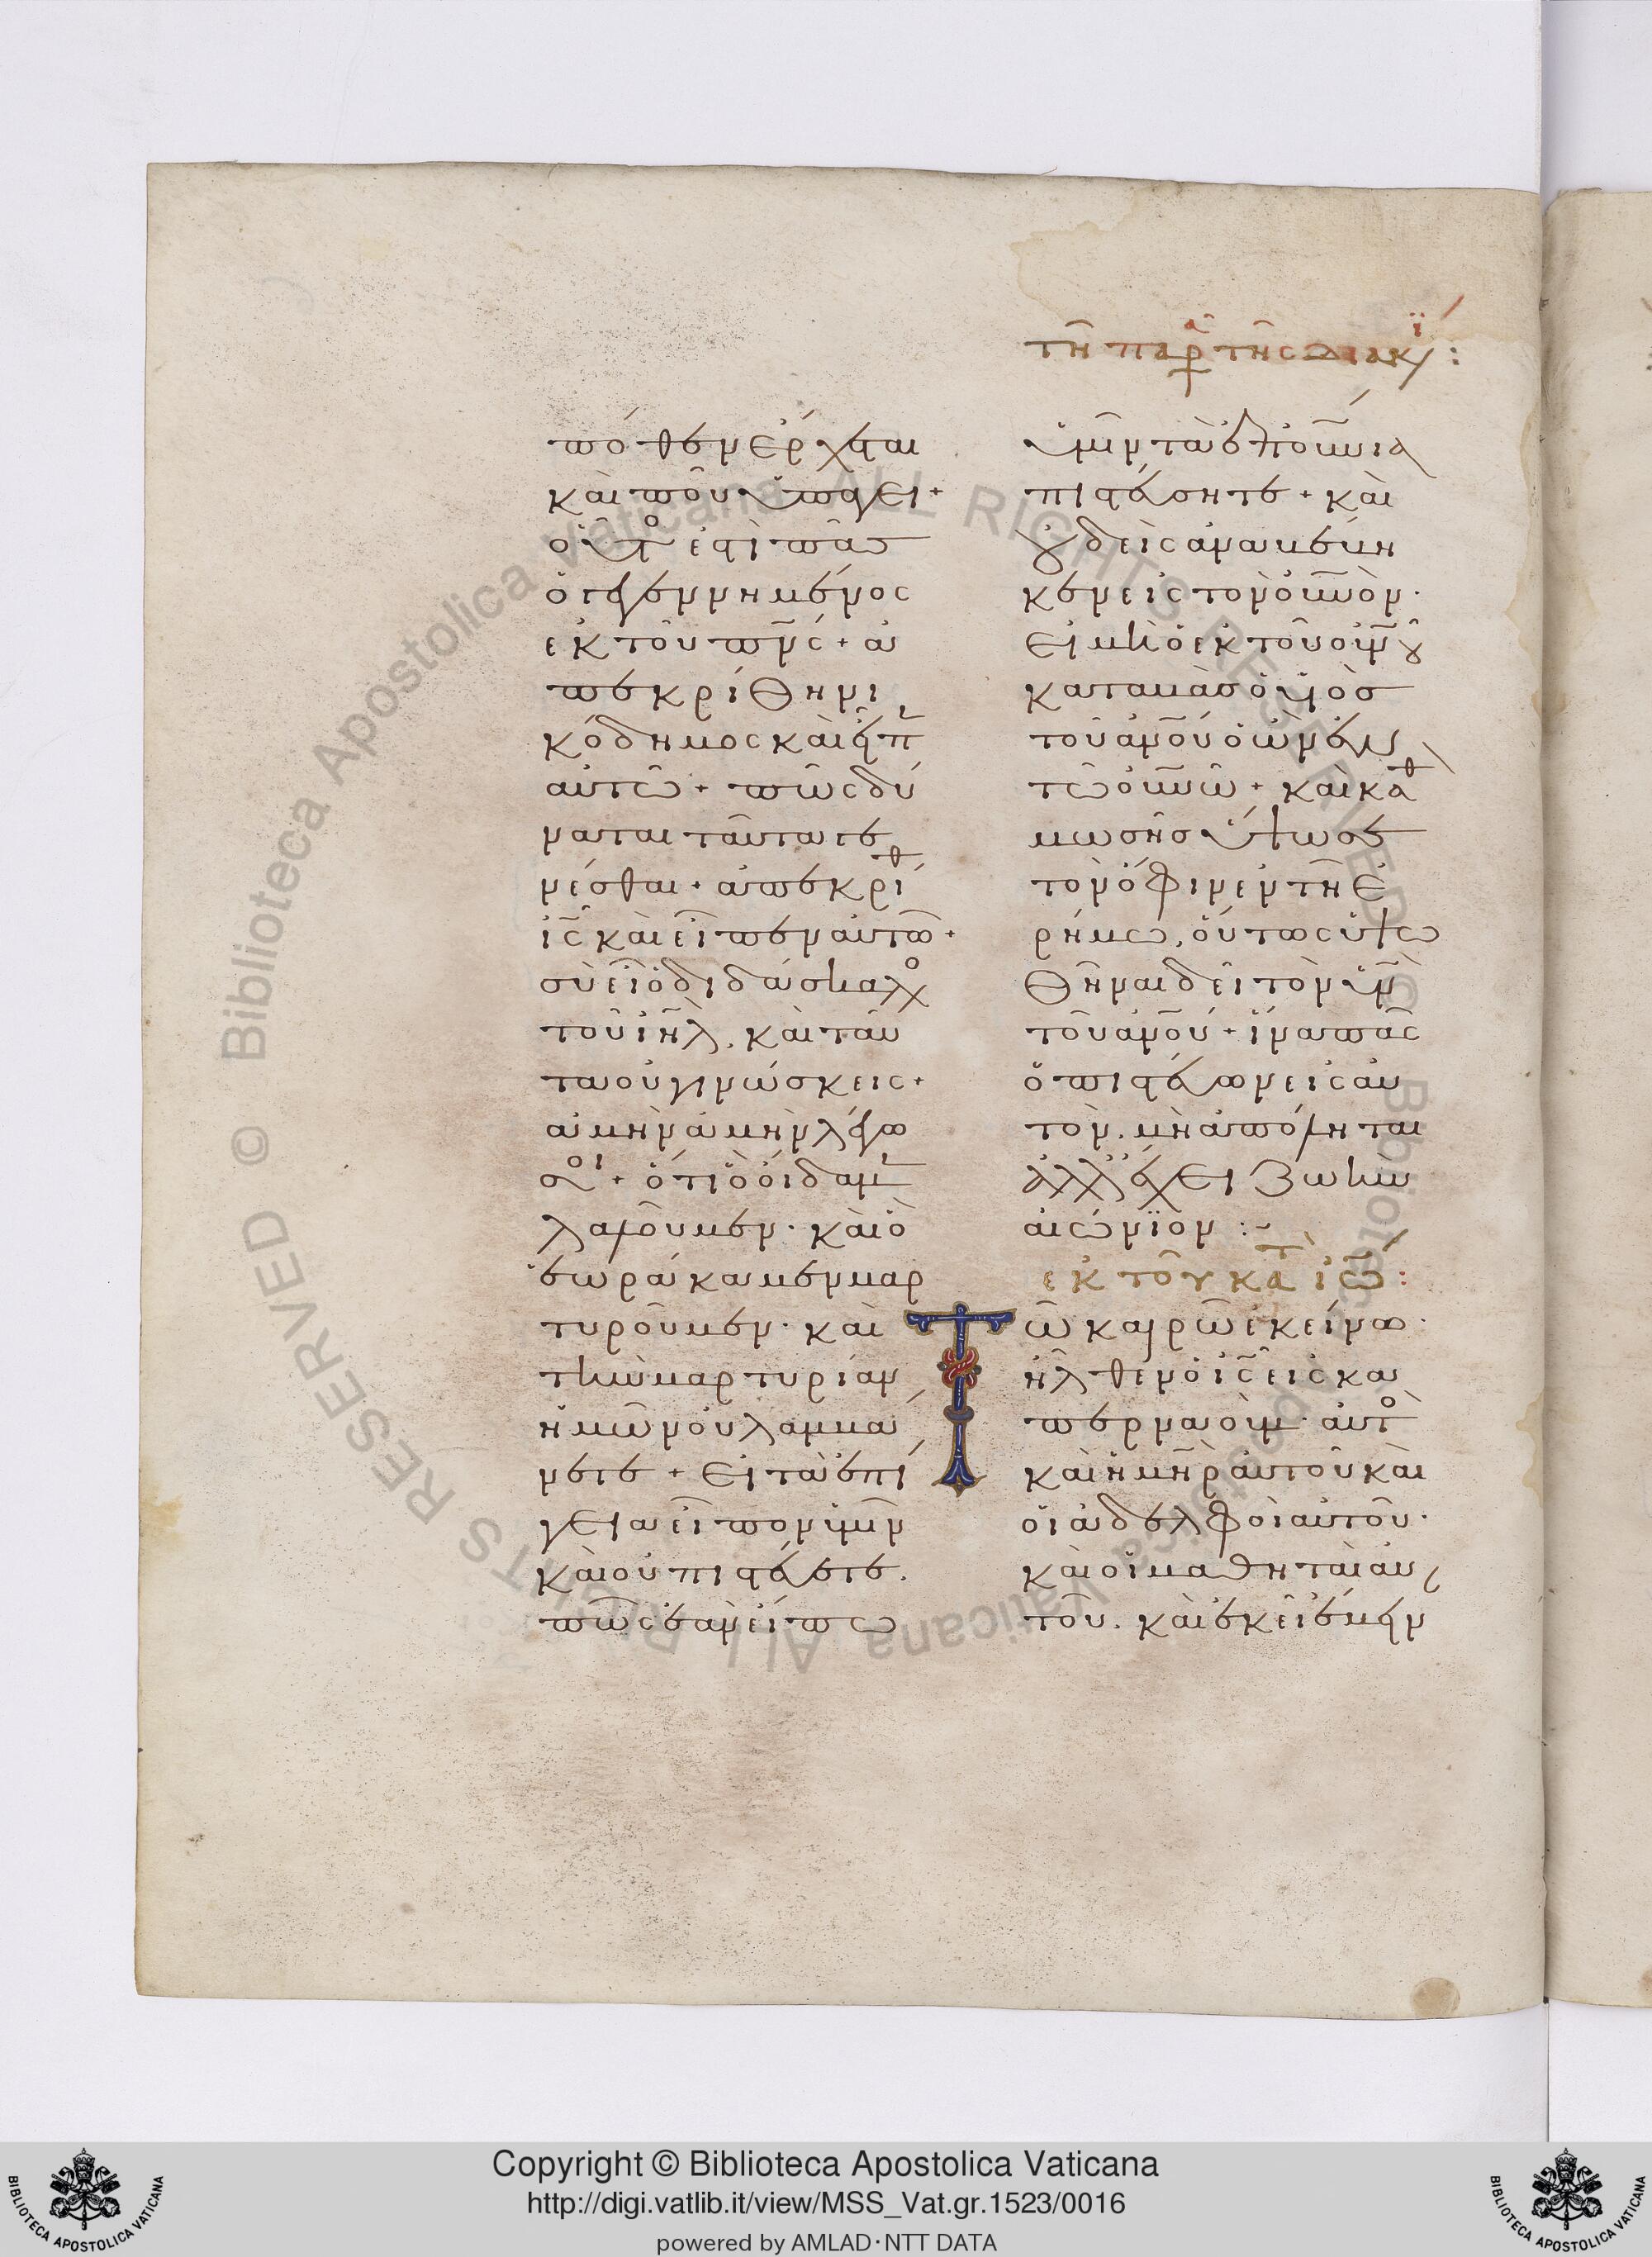 τῆ παρ τῆς διακι:
πόθεν ἔρχεται
καὶ ποῦ ὑπάγει +
οὕτ ἐστὶ πᾶσ
ὁ γεγεννημένος
ἐκ τοῦ πνς + ἀ
πεκρίθη νι
κόδημος καὶ εἶπ
αὐτῶ + πῶς δύ
ναται ταῦτα γε
νέσθαι + ἀπεκρίθ
ις καὶ εἶπεν αὐτῶ +
σὺ εἶ ὁ διδάσκαλο
τοῦ ιηλ. καὶ ταῦ
τα οὐ γινώσκεις +
ἀμὴν ἀμὴν λέγω
σοι + ὅτι ὃ οἴδαμ
λαλοῦμεν · καὶ ὃ
ἑωράκαμεν μαρ
τυροῦμεν · καὶ
τὴν μαρτυρίαν
ἡμῶν οὐ λαμβά
νετε + εἰ τὰ ἐπί
γεια εἶπον ὑμῖν
καὶ οὐ πιστεύετε.
πῶς ἐὰν εἴπω
ὑμῖν τὰ ἐπουνια
πιστεύσητε + καὶ
οὐδεὶς ἀναβέβη
κεν εἰς τὸν οὐνὸν ·
εἰ μὴ ὁ ἐκ τοῦ οὐνοῦ
καταβὰσ ὁ υἱὸσ
τοῦ ἀνοῦ ὁ ὢν ἐν
τῶ οὐνῶ + καὶ καθ
μωσῆσ ὕψωσε
τὸν ὄφιν ἐν τῆ ἐ
ρήμω, οὕτως ὑψω
θῆναι δεῖ τὸν υν
τοῦ ἀνοῦ + ἵνα πᾶς
ὁ πιστεύων εἰς αὐ
τὸν. μὴ ἀπόληται
ἀλλ' ἔχει ζωὴν
αἰώνϊον :~
ἐκ τοῦ κατ ιω:
Τῶ καιρῶ ἐκείνω ·
ἦλθεν ὁ ις εἰς κα
περναούμ · αὐτο
καὶ ἡ μηρ αὐτοῦ καὶ
οἱ ἀδελφοὶ αὐτοῦ ·
καὶ οἱ μαθηταὶ αὐ
τοῦ. καὶ ἐκεῖ ἔμειν
Copyright © Biblioteca Apostolica Vaticana
http://digi.vatlib.it/view/MSS_Vat.gr.1523/0016
powered by AMLAD·NTT DATA